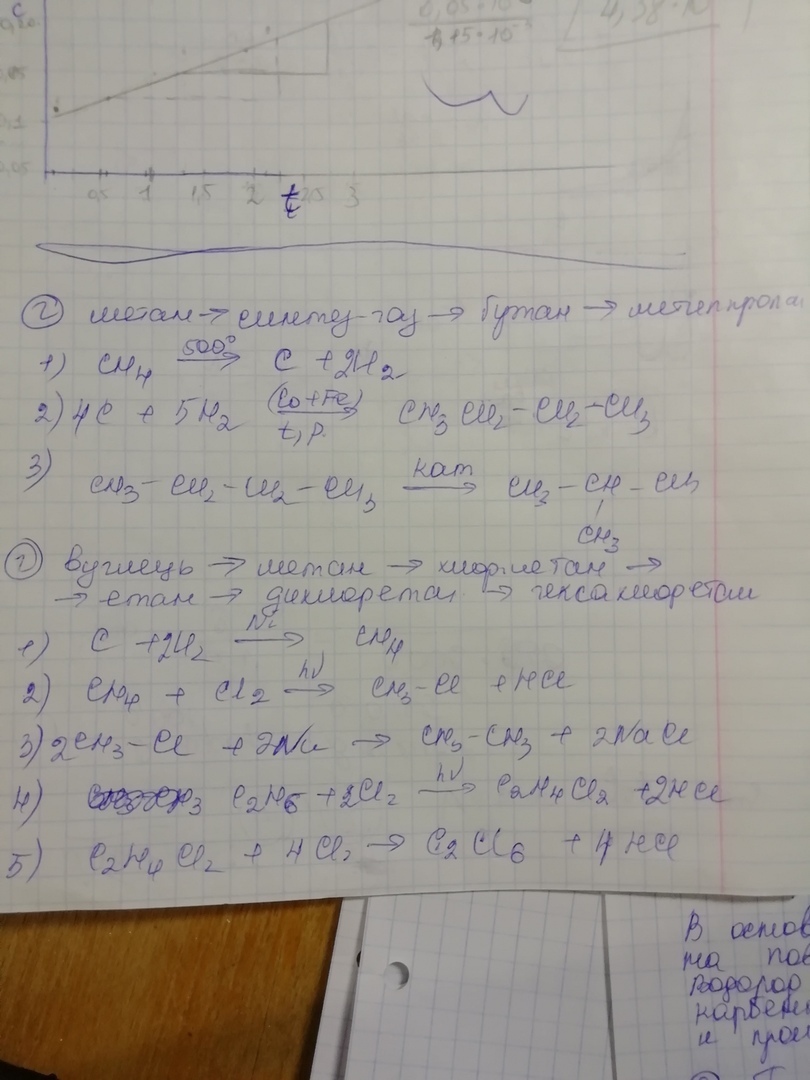 C
0,05
0,1
0,05
0,5 1 1,5 2 2,5 3
t
② метан → синтез-газ → бутан → метилпропан
1) CH4 500° → C + 2H2
2) 4C + 5H2 (Co+Fe) t, p. → CH3 CH2 - CH2 - CH3
3) CH3 - CH2 - CH2 - CH3 кат → CH3 - CH - CH3
CH3
① Вуглець → метан → хлорметан →
→ етан → дихлоретан → гексахлоретан
1) C + 2H2 Ni → CH4
2) CH4 + Cl2 hν → CH3 - Cl + HCl
3) 2CH3 - Cl + 2Na → CH3 - CH3 + 2NaCl
4) C2H6 + 2Cl2 hν → C2H4Cl2 + 2HCl
5) C2H4Cl2 + 4Cl2 → C2Cl6 + 4HCl
В основ
та пов
водород
карбени
и пром